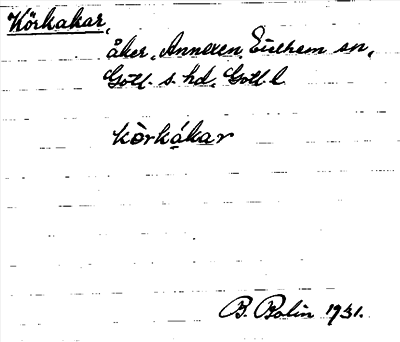 Körkakar,
åker, Annexen, Eskelhem sn,
Gotl. s. hd, Gotl. l.
kòrkákar
B. Bolin 1931.